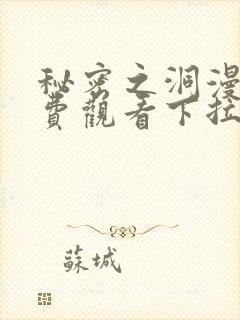 秘密之洞漫
費觀看下拉
蘇城